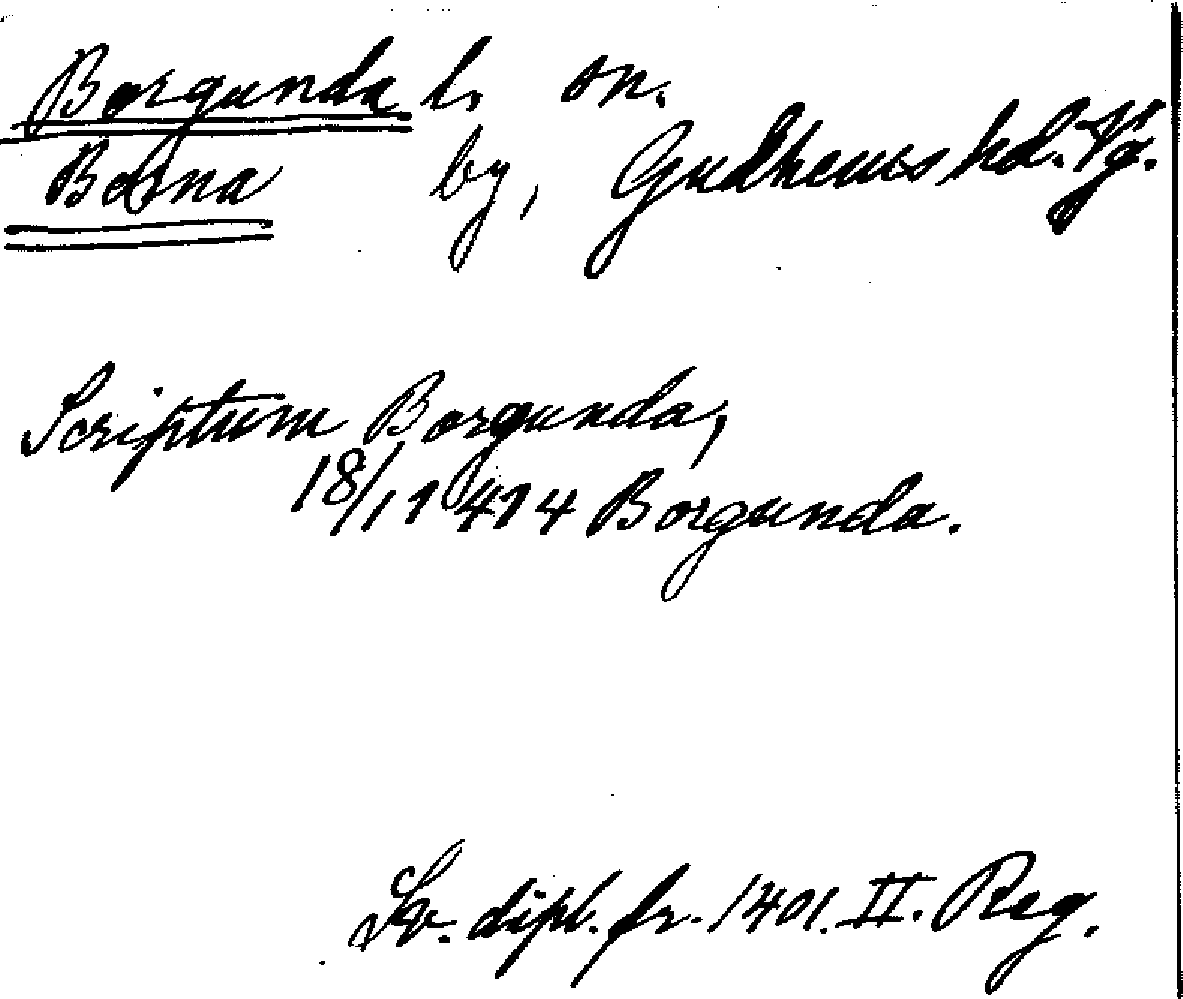 Borgunda l. sn.
Borna by, Gudhems hd. Vg.
Scriptum Borgunda,
18/11 1414 Borgunda.
Sv. dipl. fr. 1401. II. Reg.